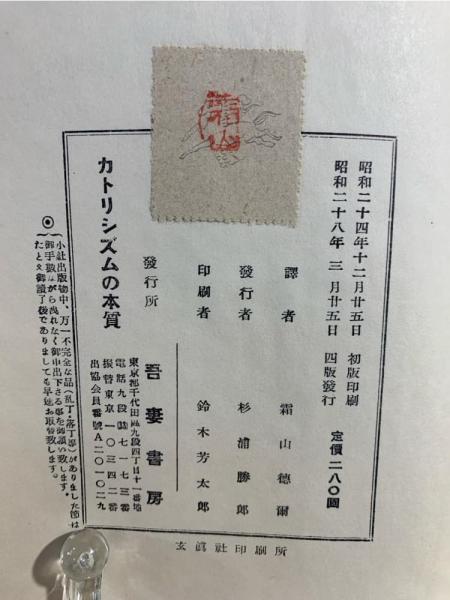 昭和二十四年十二月廿五日 初版印刷
昭和二十八年 三月廿五日 四版發行
定價二八〇圓
譯者 霜山德爾
發行者 杉浦勝郎
印刷者 鈴木芳太郎
發行所 吾妻書房
東京都千代田區九段四丁目十一番地
電話九段㉝七一七三番
振替東京一〇三四二番
出協会員番號A二〇一〇二九
カトリシズムの本質
小社出版物中、万一不完全な品(乱丁・落丁等)がありました節は
御手数ながら洩れなく御申出下さる事を御願い致します。
たとえ御讀了後でありましても早速お取替致します。
玄眞社印刷所